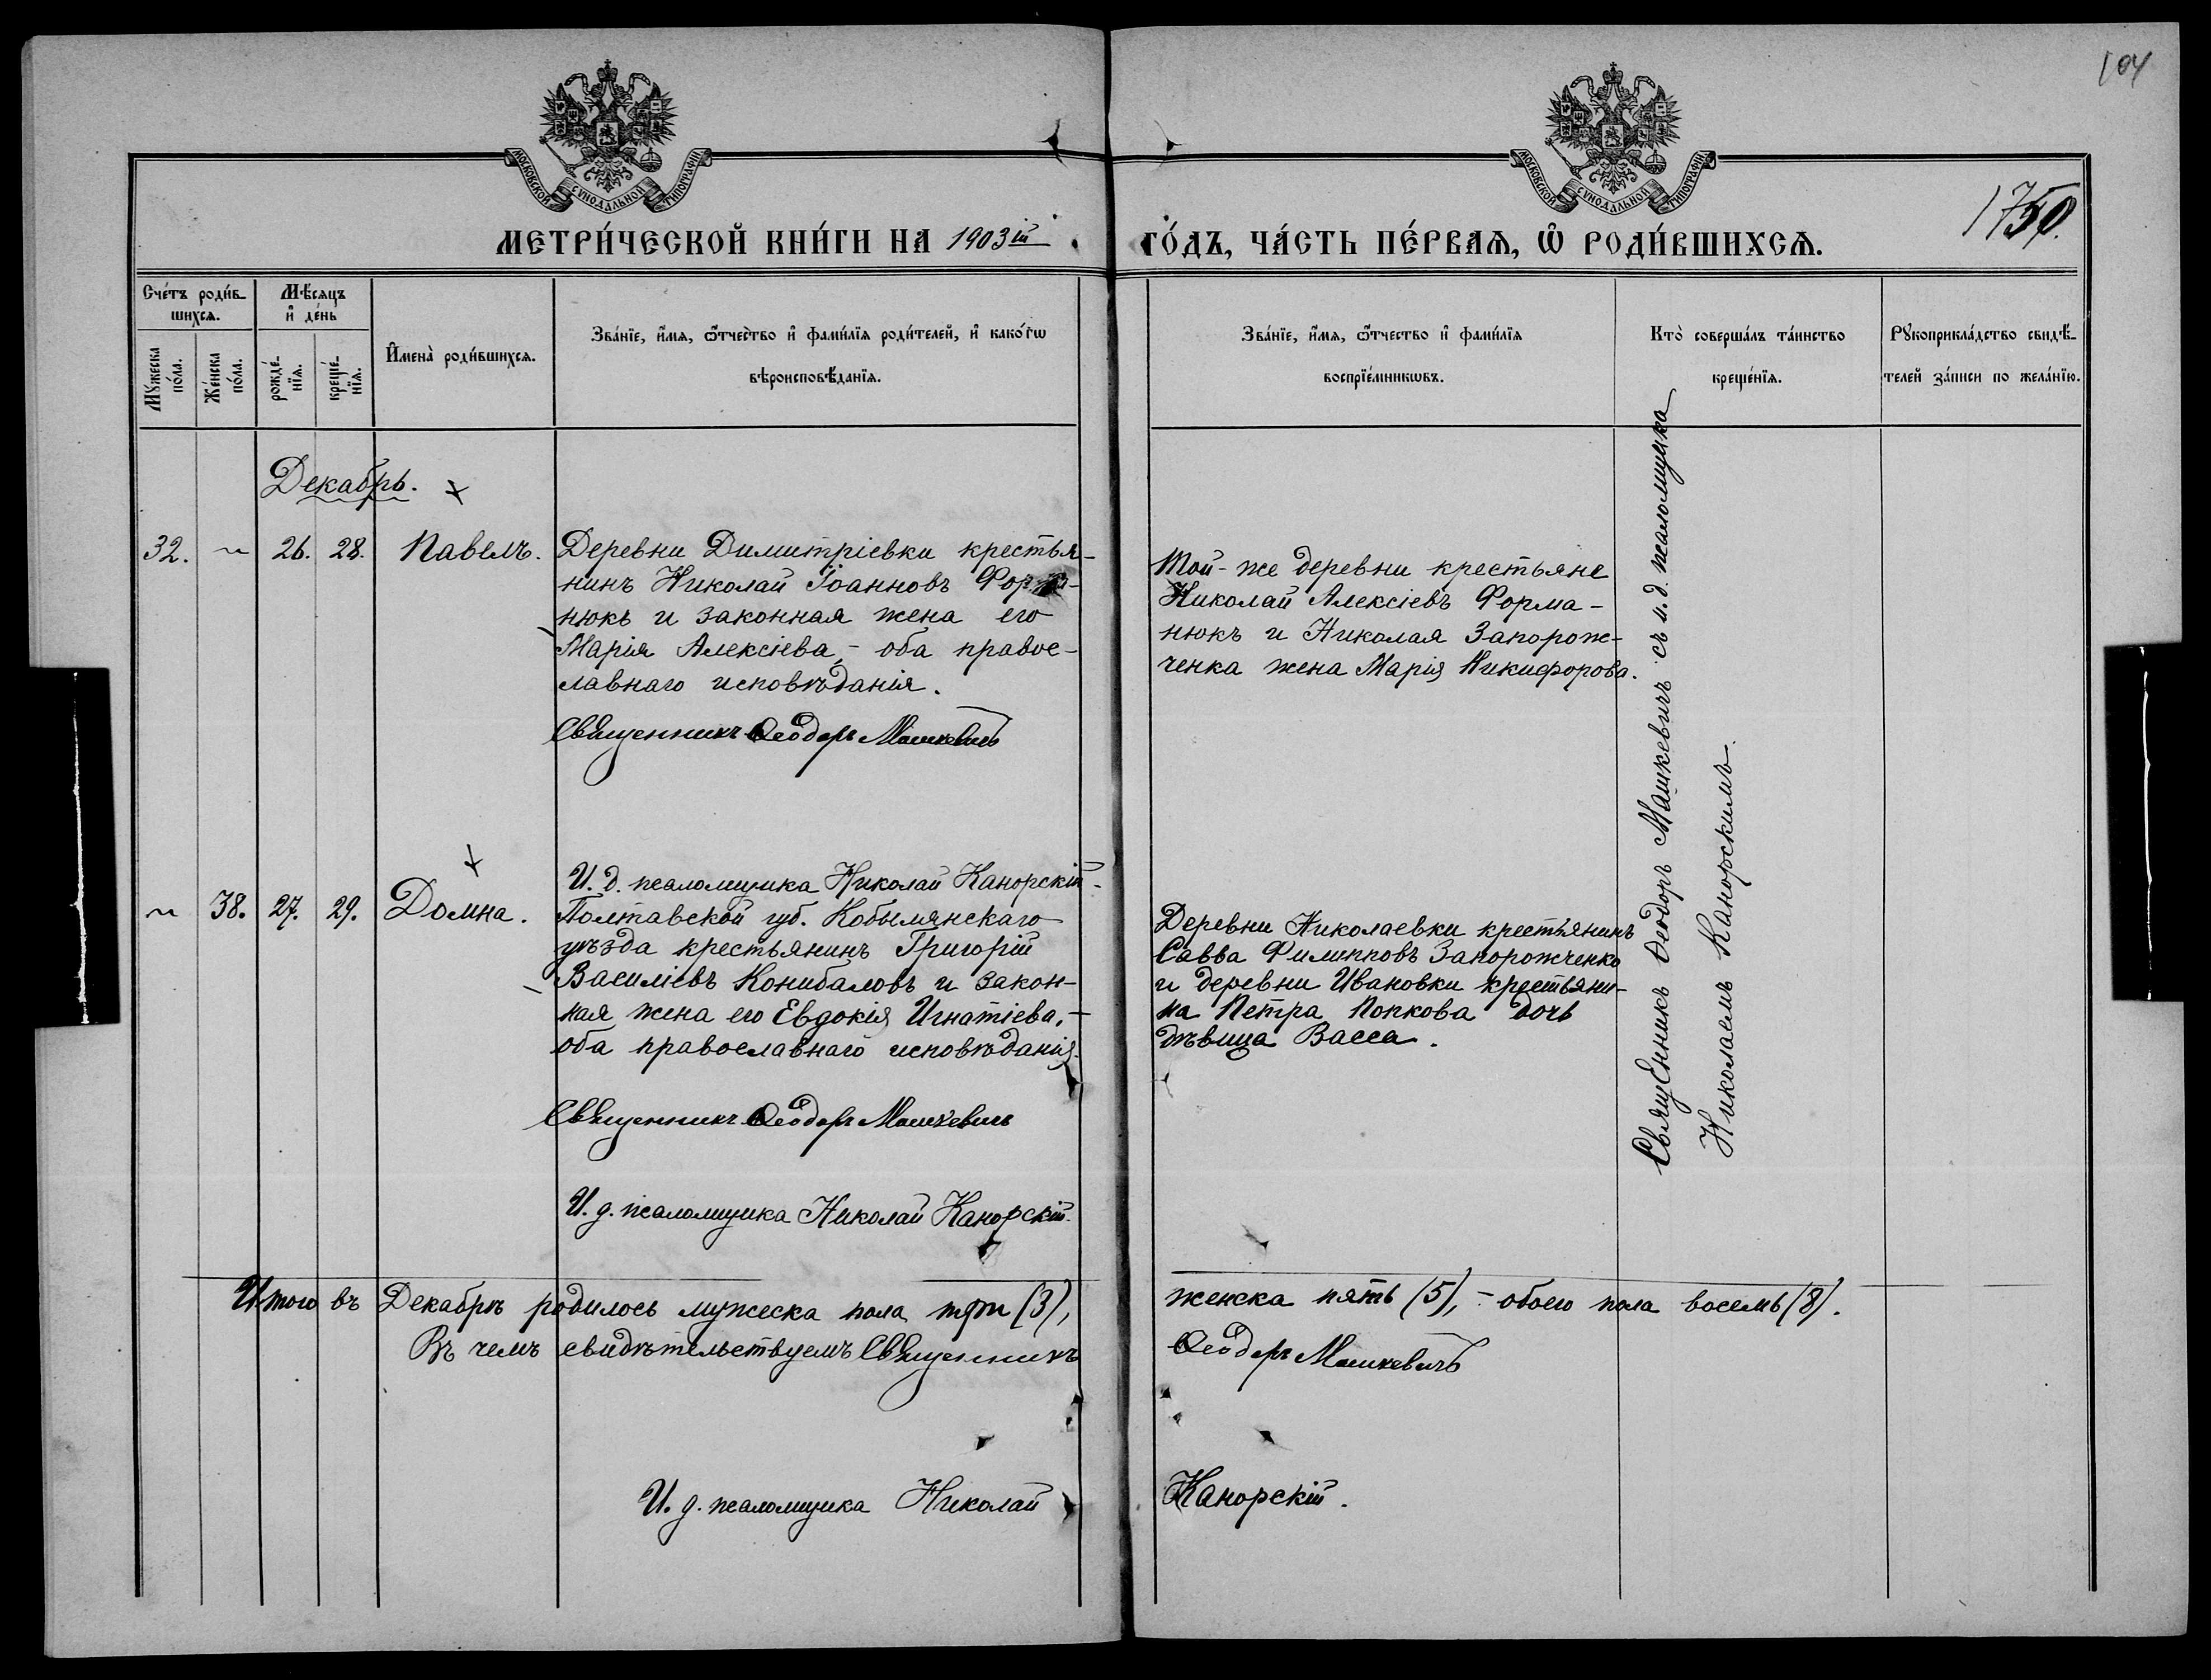 104
МОСКОВСКОЙ СѴНОДАЛЬНОЙ ТИПОГРАФІИ
МОСКОВСКОЙ СѴНОДАЛЬНОЙ ТИПОГРАФІИ
1750.
МЕТРИ́ЧЕСКОЙ КНИ́ГИ НА 1903й ГО́ДЪ, ЧА́СТЬ ПЕ́РВАѦ, Ѡ҆ РОДИ́ВШИХСѦ.
Сче́тъ роди́в-
шихсѧ.
Мѣ́сѧцъ
и҆ де́нь
Мꙋ́жеска
по́ла.
Же́нска
по́ла.
рожде́-
нїѧ.
креще́-
нїѧ.
И҆мена̀ роди́вшихсѧ.
Зва́нїе, и҆́мѧ, ѻ҆́тчество и҆ фами́лїѧ роди́телей, и҆ како́гѡ
вѣроисповѣ́данїѧ.
Зва́нїе, и҆́мѧ, ѻ҆́тчество и҆ фами́лїѧ
воспрїе́мникѡвъ.
Кто̀ соверша́лъ та́инство
креще́нїѧ.
Рꙋкоприкла́дство свидѣ́-
телей за́писи по жела́нїю.
Декабрь.
32. 26. 28. Павелъ.
Деревни Димитріевки крестья-
нинъ Николай Іоанновъ Форма-
нюкъ и законная жена его
Марія Алексіева, - оба правос-
лавнаго исповѣданія.
Священникъ Ѳеодоръ Машкевичъ
Той-же деревни крестьяне
Николай Алексіевъ Форма-
нюкъ и Николая Запорож-
ченка жена Марія Никифорова.
И. д. псаломщика Николай Канорскій.
38. 27. 29. Домна.
Полтавской губ. Кобылянскаго
уѣзда крестьянинъ Григорій
Василіевъ Конибаловъ и закон-
ная жена его Евдокія Игнатіева, -
оба православнаго исповѣданія.
Священникъ Ѳеодоръ Машкевичъ
И. д. псаломщика Николай Канорскій.
Деревни Николаевки крестьянинъ
Савва Филипповъ Запорожченко
и деревни Ивановки крестьяни-
на Петра Попкова дочь
дѣвица Васса.
Священникъ Ѳеодоръ Машкевичъ съ и. д. псаломщика
Николаемъ Канорскимъ.
Итого въ Декабрѣ родилось мужеска пола три (3), женска пять (5), - обоего пола восемь (8).
Въ чемъ свидѣтельствуемъ Священникъ Ѳеодоръ Машкевичъ
И. д. псаломщика Николай Канорскій.